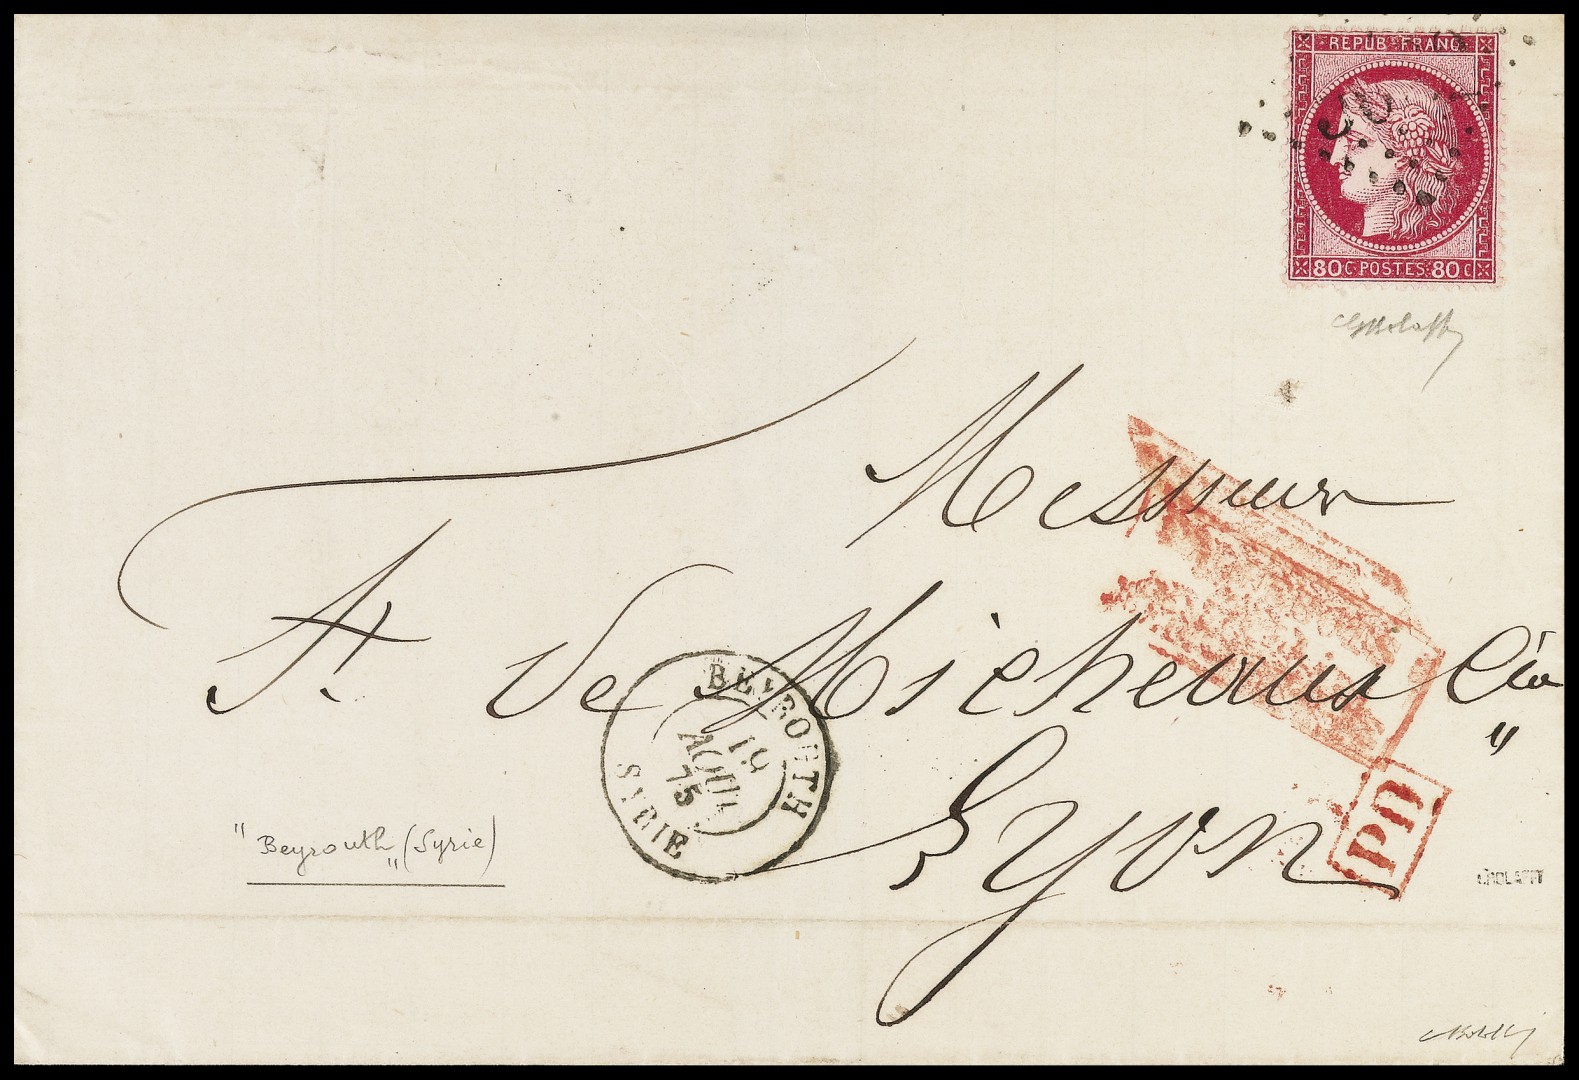 REPUB FRANC
80 C POSTES 80 C
Messieurs
A. De Micheaux Cie
Lyon
BEYROUTH
19
AOUT
75
SYRIE
"Beyrouth" (Syrie)
PD